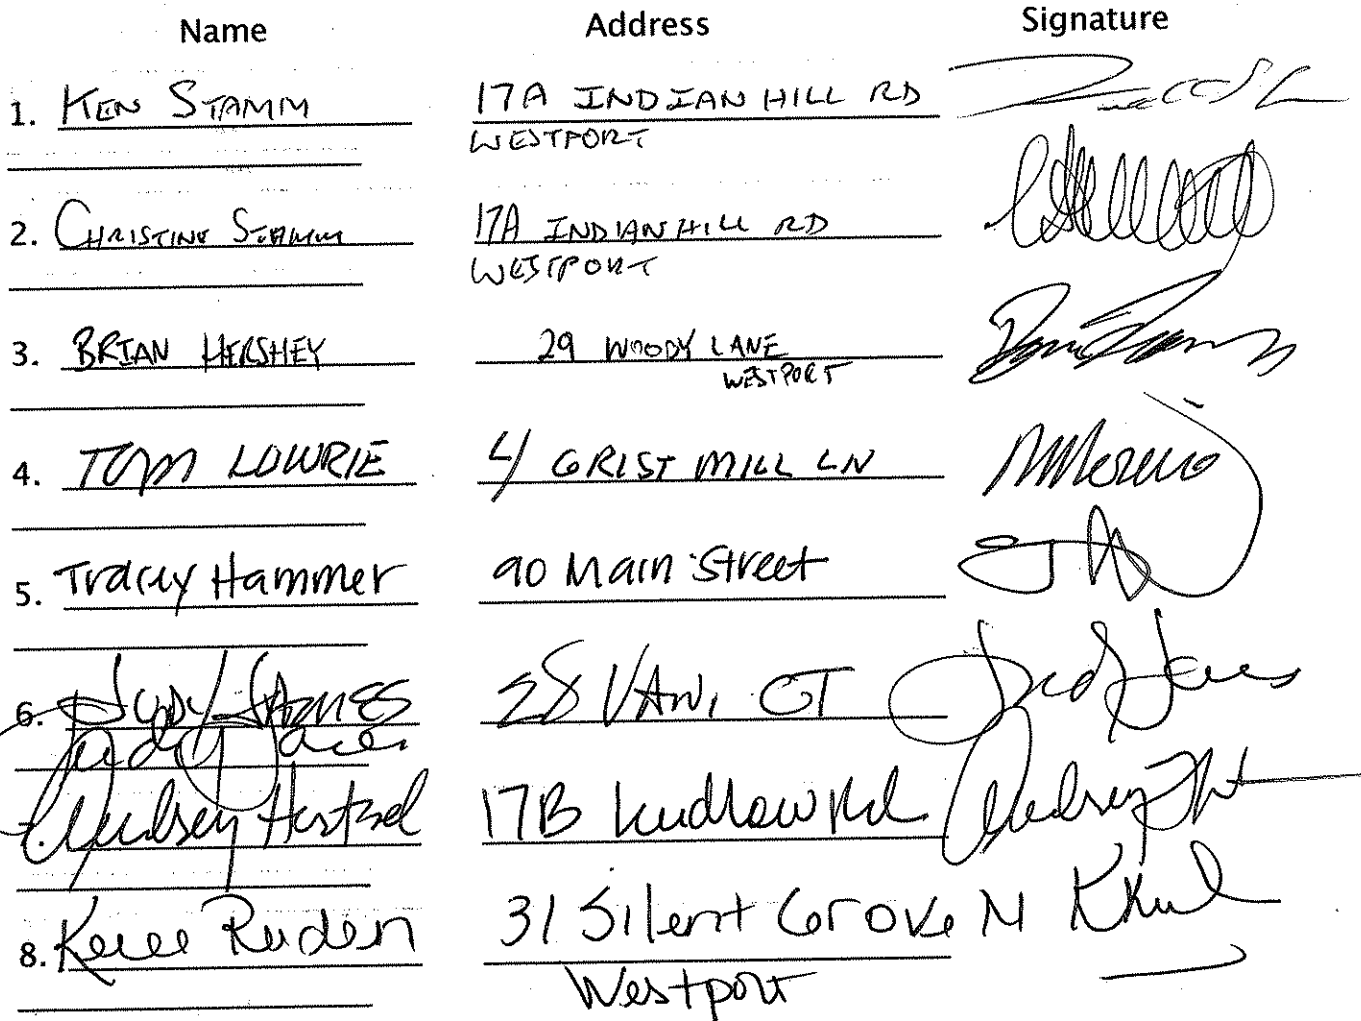 Name Address Signature
1. KEN STAMM 17A INDIAN HILL RD
WESTPORT
2. CHRISTINE STAMM 17A INDIAN HILL RD
WESTPORT
3. BRIAN HERSHEY 29 WOODY LANE
WESTPORT
4. TOM LOWRIE 4 GRIST MILL LN
5. Tracey Hammer 90 Main Street
6. JUDY JAMES 28 VANI CT Judy James
Judy James
Lyndsey 17B Ludlow Rd Lyndsey
8. Ruden 31 Silent Grove N
Westport